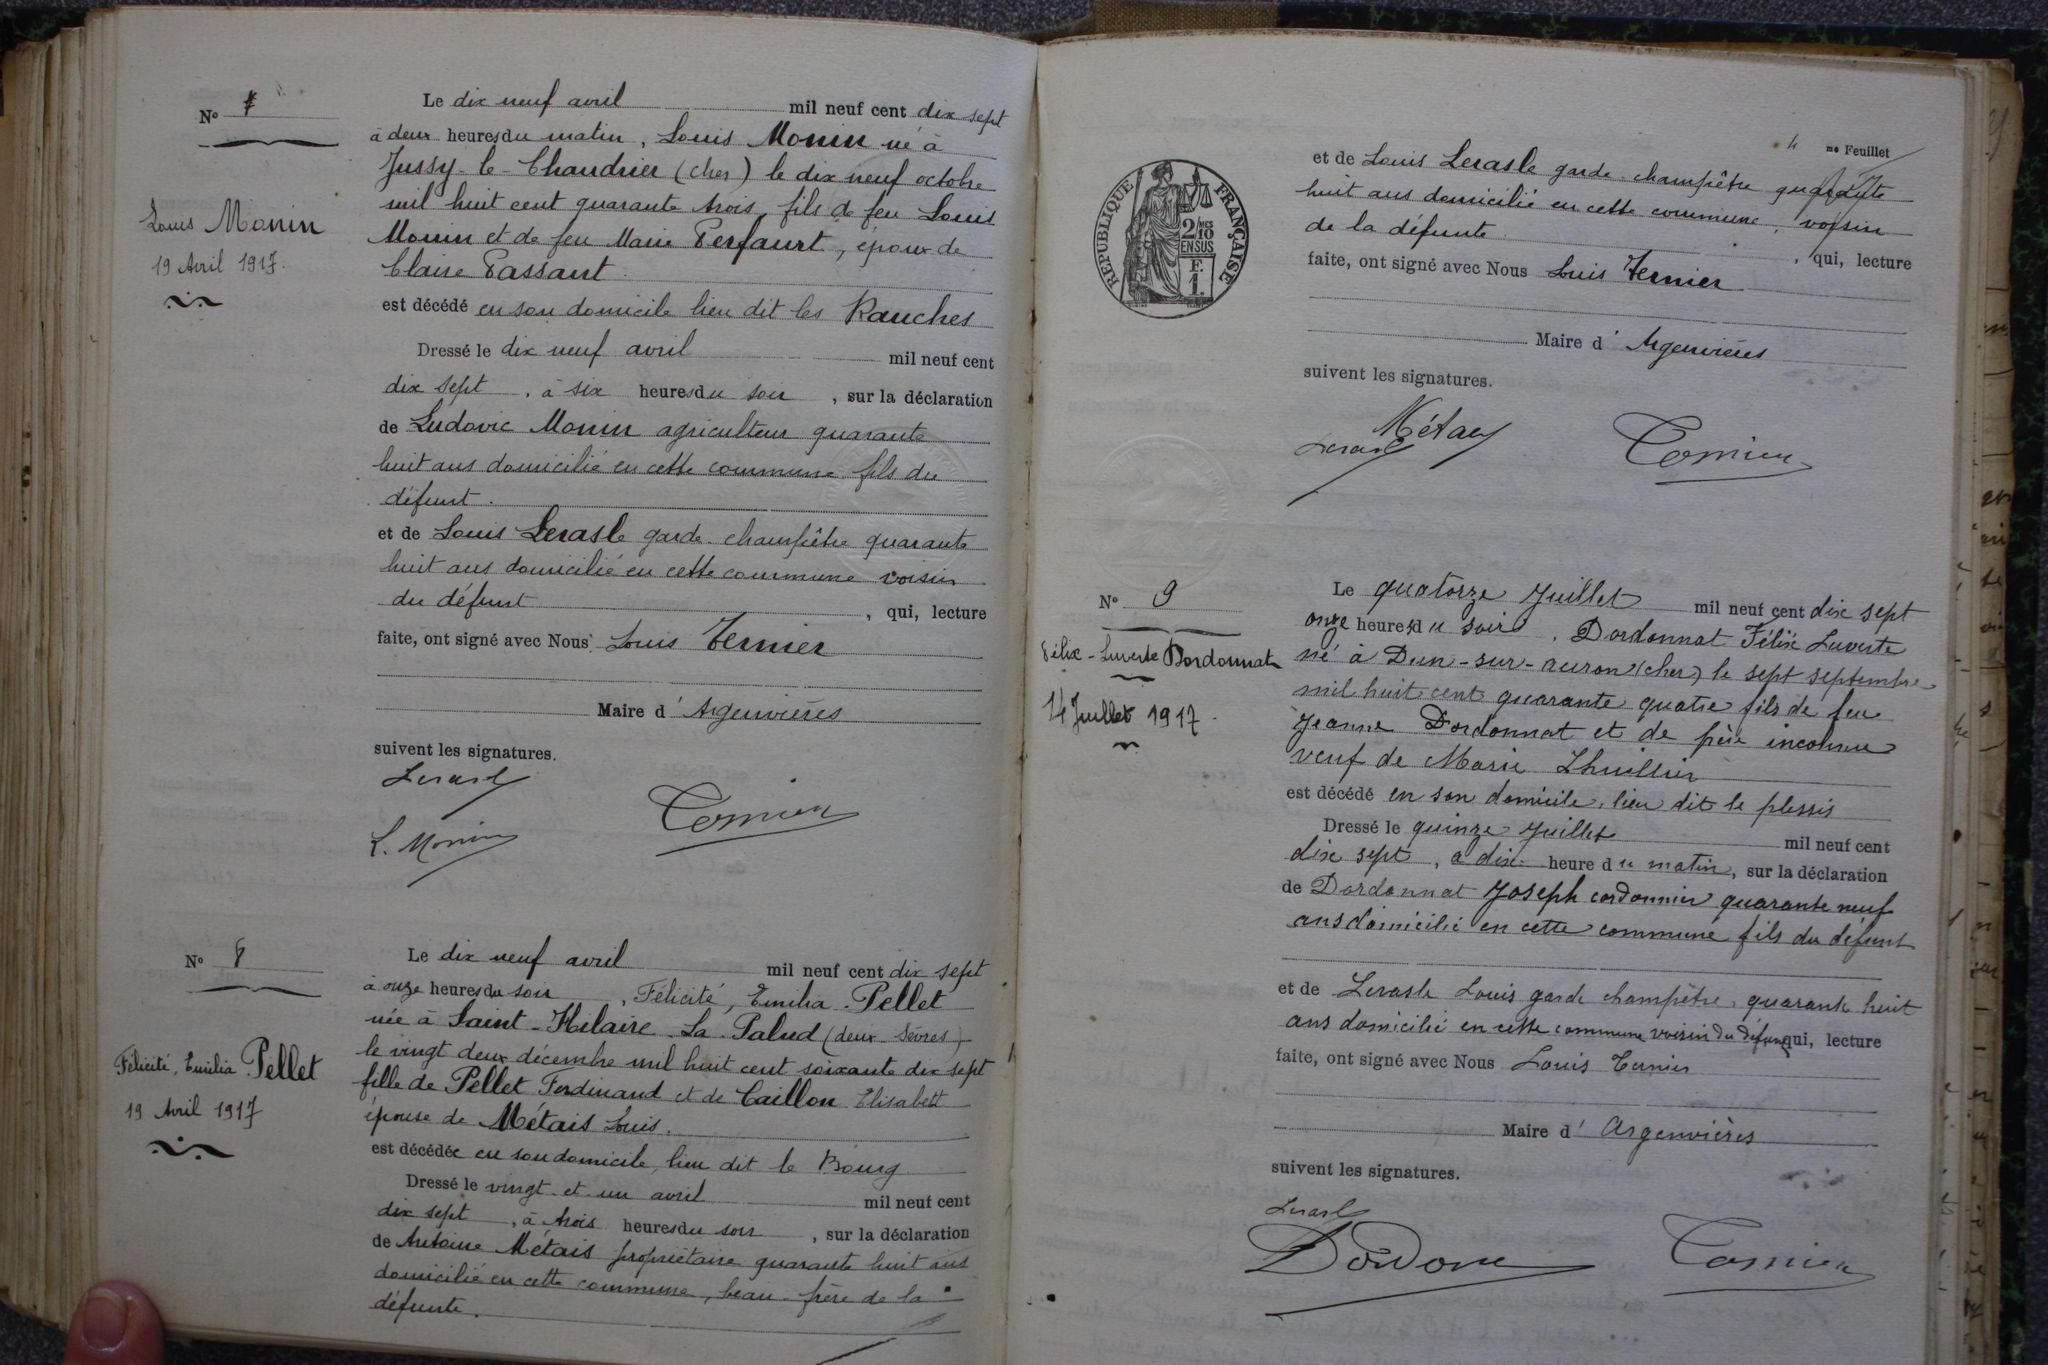 N° 7
Louis Monin
19 Avril 1917.
Le dix neuf avril mil neuf cent dix sept
à deux heures du matin, Louis Monin né à
Jussy-le-Chaudrier (cher) le dix neuf octobre
mil huit cent quarante trois, fils de feu Louis
Monin et de feu Marie Perfaurt, époux de
Claire Passant.
est décédé en son domicile lieu dit les Rauches
Dressé le dix neuf avril mil neuf cent
dix sept, à six heures du soir, sur la déclaration
de Ludovic Monin agriculteur quarante
huit ans domicilié en cette commune fils du
défunt.
et de Louis Lerasle garde-champêtre quarante
huit ans domicilié en cette commune voisin
du défunt, qui, lecture
faite, ont signé avec Nous Louis Ternier
Maire d'Argenvières
suivent les signatures.
Lerasle
L. Monin
Ternier
N° 8
Félicité, Emilia Pellet
19 Avril 1917
Le dix neuf avril mil neuf cent dix sept
à onze heures du soir, Félicité, Emilia Pellet
née à Saint-Hilaire-La-Palud (deux Sèvres)
le vingt deux décembre mil huit cent soixante dix sept
fille de Pellet Ferdinand et de Caillon Elisabett
épouse de Métais Louis.
est décédée en son domicile, lieu dit le Bourg
Dressé le vingt-et-un avril mil neuf cent
dix sept, à trois heures du soir, sur la déclaration
de Antoine Métais propriétaire quarante huit ans
domicilié en cette commune, beau-frère de la
défunte.
4 me Feuillet
RÉPUBLIQUE FRANÇAISE
2/10 MES
EN SUS
F.
1.
et de Louis Lerasle garde-champêtre quarante
huit ans domicilié en cette commune, voisin
de la défunte.
, qui, lecture
faite, ont signé avec Nous Louis Ternier
Maire d'Argenvières
suivent les signatures.
Métais
Lerasle
Ternier
N° 9
Félix-Luverte Dordonnat
14 Juillet 1917.
Le quatorze Juillet mil neuf cent dix sept
onze heures du soir, Dordonnat Félix Luverte
né à Dun-sur-auron (cher) le sept septembre
mil huit cent quarante quatre fils de feu
Jeanne Dordonnat et de père inconnu
veuf de Marie Lhuillier
est décédé en son domicile, lieu dit le plessis
Dressé le quinze Juillet mil neuf cent
dix sept, à dix heure du matin, sur la déclaration
de Dordonnat Joseph cordonnier quarante neuf
ans domicilié en cette commune fils du défunt
et de Lerasle Louis garde champêtre, quarante huit
ans domicilié en cette commune voisin du défunt qui, lecture
faite, ont signé avec Nous Louis Ternier
Maire d'Argenvières
suivent les signatures.
Lerasle
Dordone
Ternier